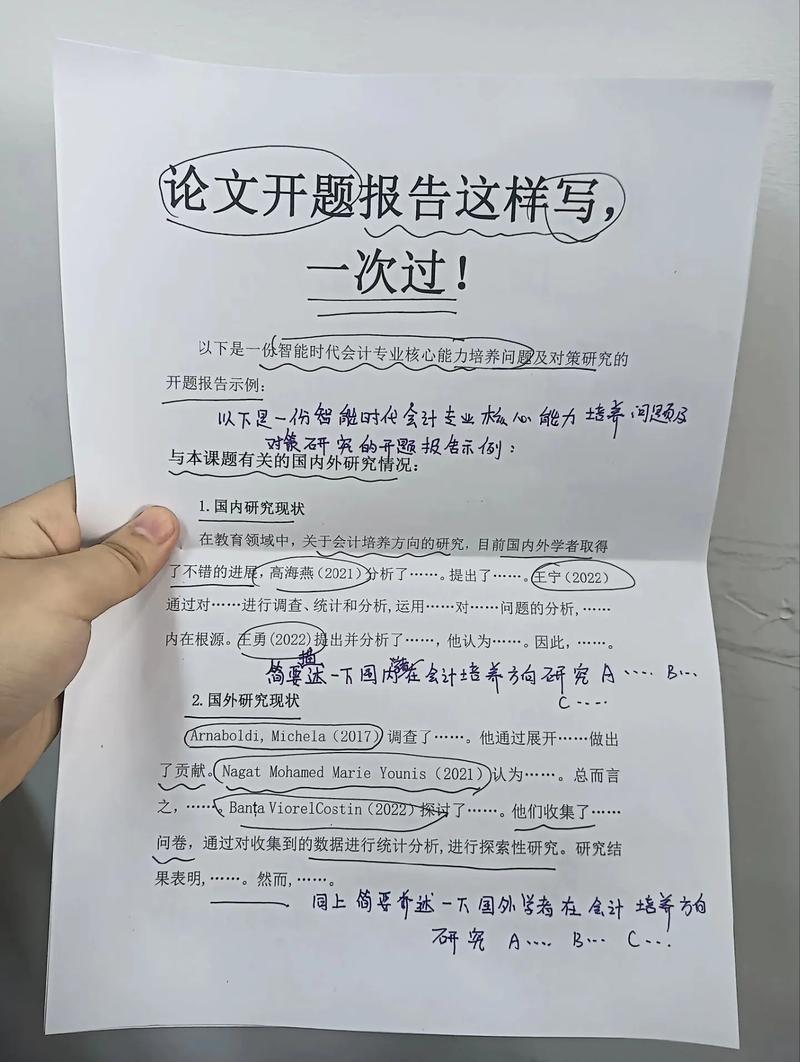 论文开题报告这样写，
一次过！
以下是一份智能时代会计专业核心能力培养问题及对策研究的
开题报告示例：
以下是一份智能时代会计专业核心能力培养问题及
对策研究的开题报告示例：
与本课题有关的国内外研究情况：
1.国内研究现状
在教育领域中，关于会计培养方向的研究，目前国内外学者取得
了不错的进展，高海燕（2021）分析了……。提出了……。王宁（2022）
通过对……进行调查、统计和分析，运用……对……问题的分析，……
内在根源。王勇（2022）提出并分析了……，他认为……。因此，……。
简要描述一下国内学者在会计培养方向研究 A…… B…
C……
2.国外研究现状
Arnaboldi, Michela（2017）调查了……。他通过展开……做出
了贡献。Nagat Mohamed Marie Younis（2021）认为……。总而言
之，……。Banta ViorelCostin（2022）探讨了……。他们收集了……
问卷，通过对收集到的数据进行统计分析，进行探索性研究。研究结
果表明，……。然而，……。
同上 简要称述一下国外学者在会计培养方向
研究 A…… B… C…